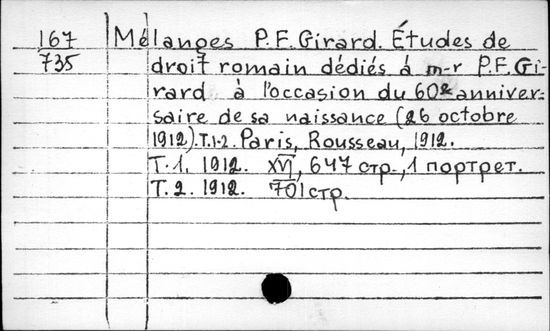 167 Mélanges P.F. Girard. Études de
735 droit romain dédiés à m-r P.F. Gi-
rard à l'occasion du 60e anniver-
saire de sa naissance (26 octobre
1912). T.1-2. Paris, Rousseau, 1912.
Т. 1. 1912. XVI, 647 стр., 1 портрет.
Т. 2. 1912. 701 стр.